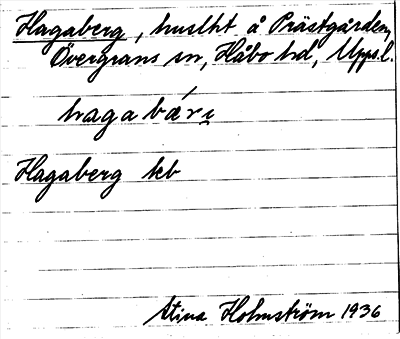 Hagaberg, huslht å Prästgården,
Övergrans sn, Håbo hd, Upps.l.
haga bárị
Hagaberg kb
Stina Holmström 1936